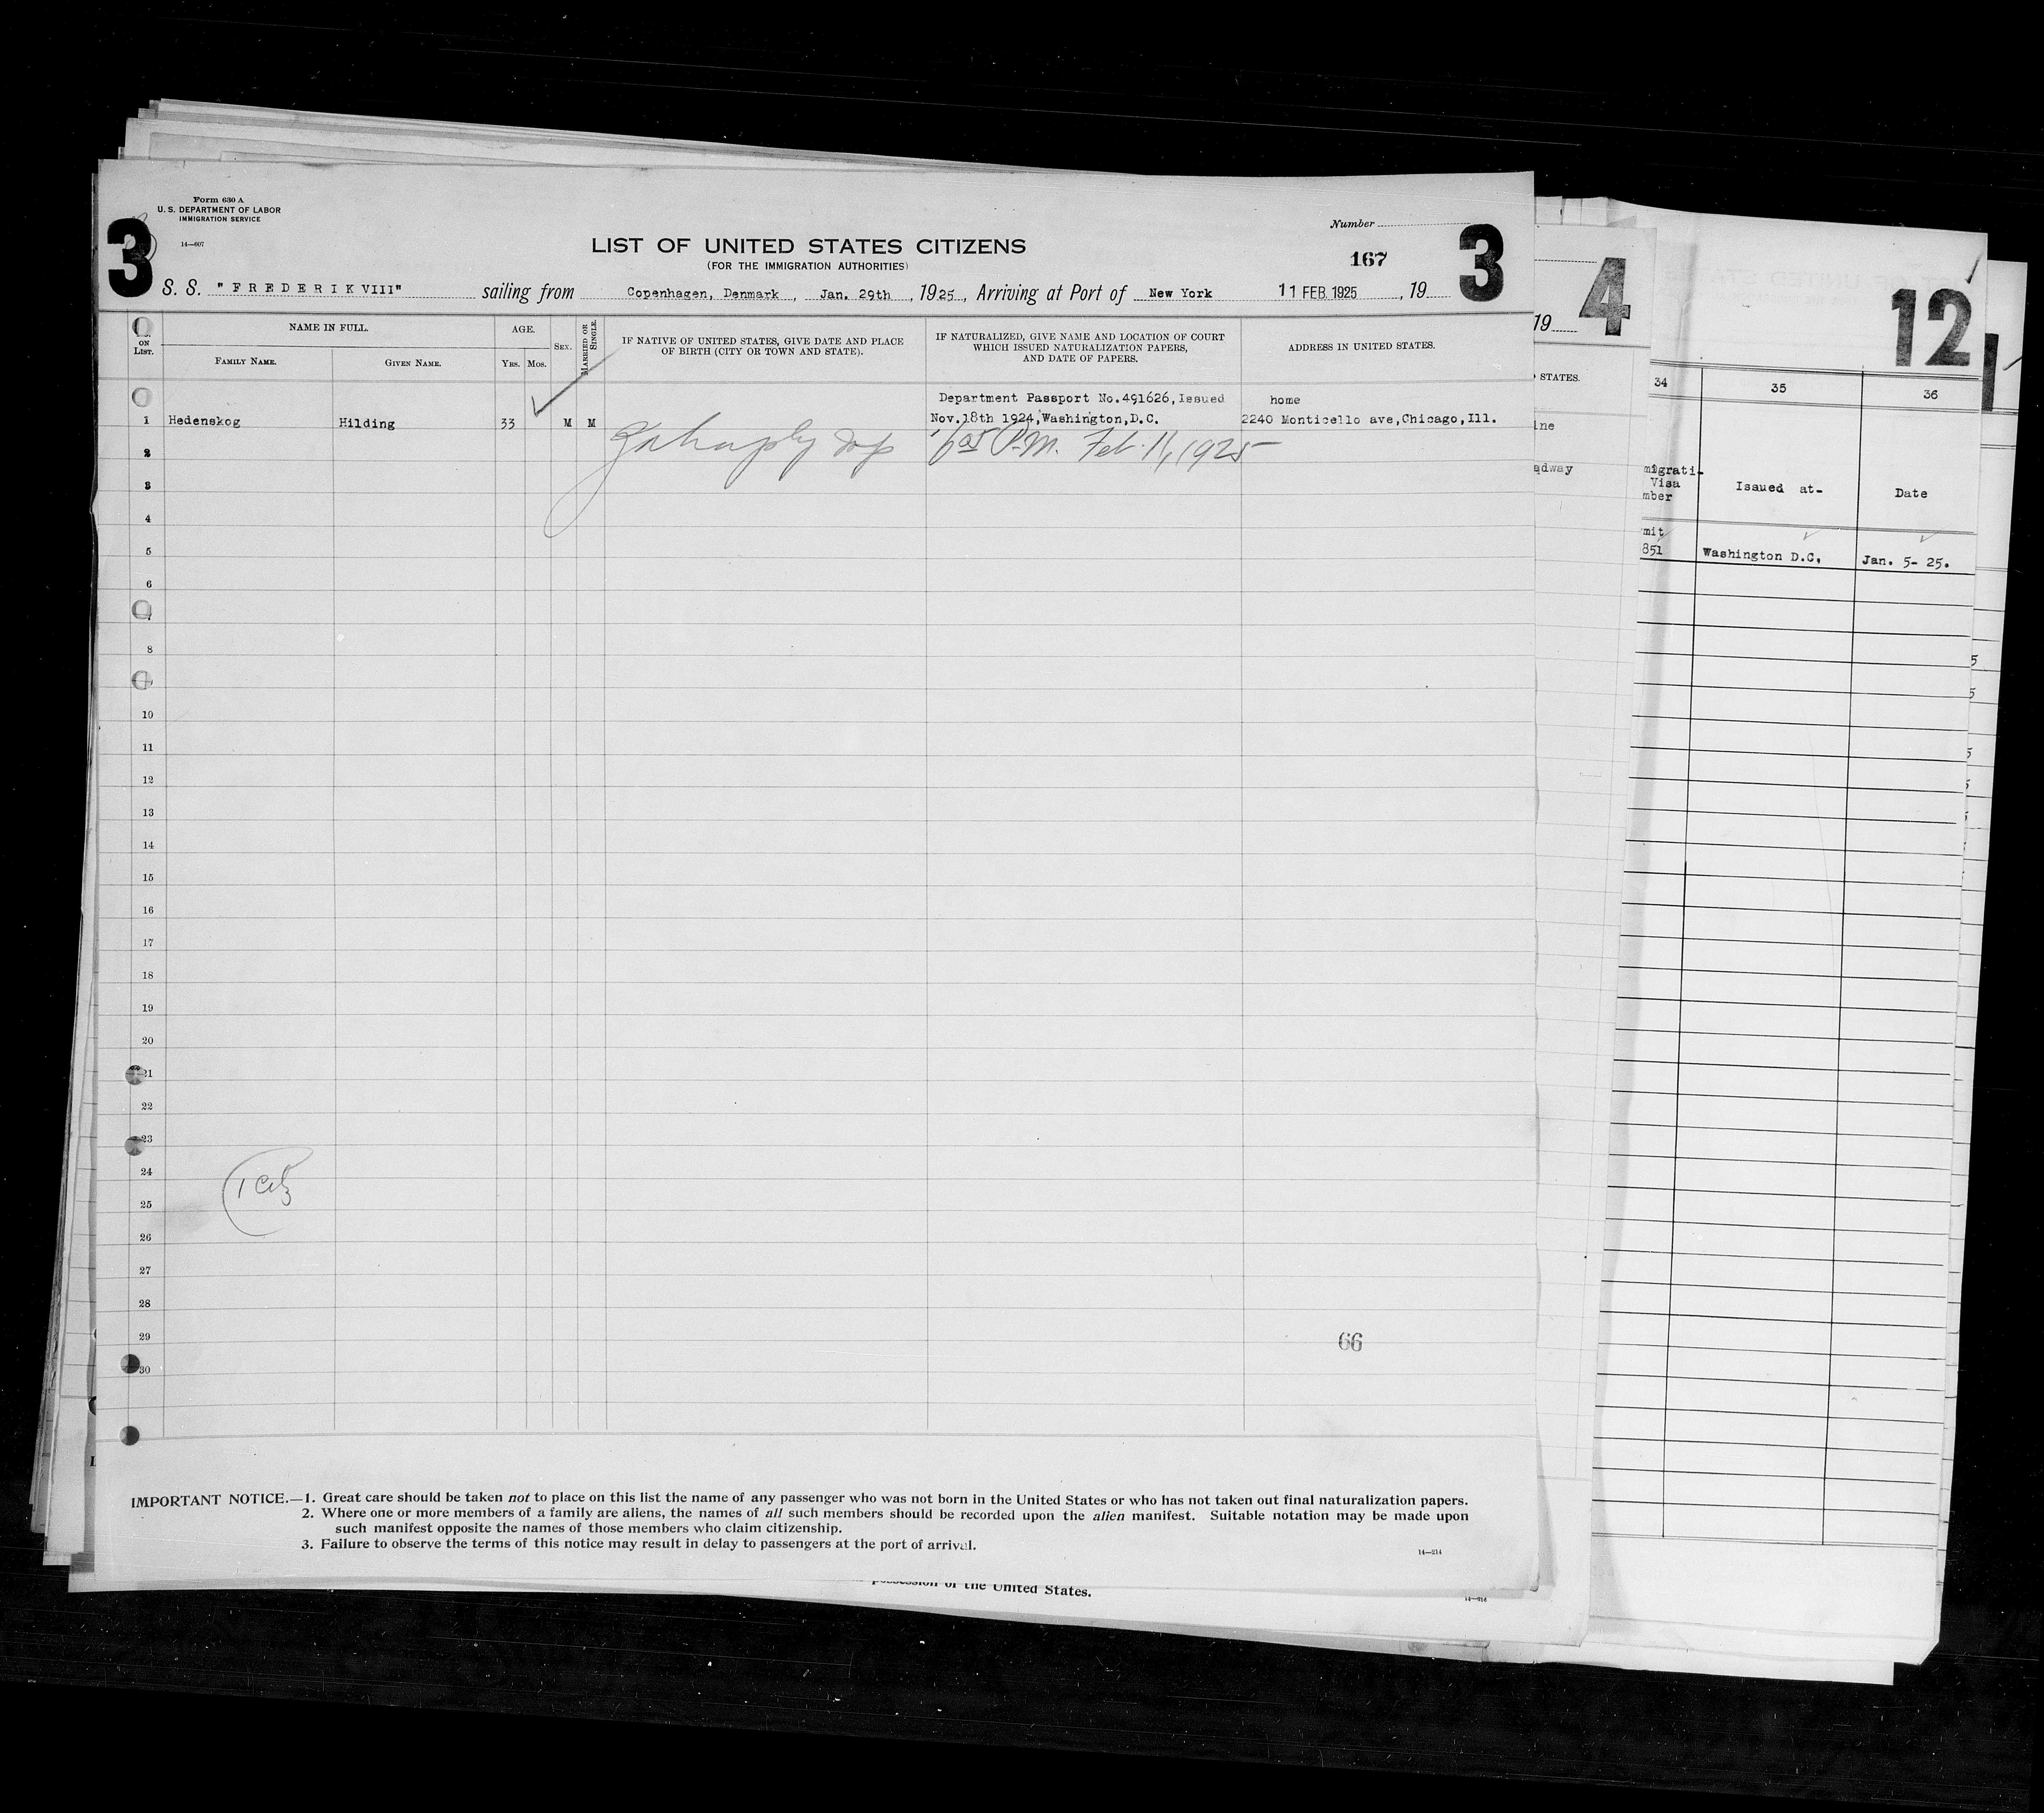 Form 630 A
U. S. DEPARTMENT OF LABOR
IMMIGRATION SERVICE
14—607
3
Number
LIST OF UNITED STATES CITIZENS
(FOR THE IMMIGRATION AUTHORITIES)
167
3
S. S. "FREDERIK VIII" sailing from Copenhagen, Denmark, Jan. 29th, 1925, Arriving at Port of New York 11 FEB. 1925, 19
ON LIST.
NAME IN FULL.
FAMILY NAME.
GIVEN NAME.
AGE.
YRS.
MOS.
SEX.
MARRIED OR SINGLE.
IF NATIVE OF UNITED STATES, GIVE DATE AND PLACE
OF BIRTH (CITY OR TOWN AND STATE).
IF NATURALIZED, GIVE NAME AND LOCATION OF COURT
WHICH ISSUED NATURALIZATION PAPERS,
AND DATE OF PAPERS.
ADDRESS IN UNITED STATES.
Department Passport No.491626, Issued home
1 Hedenskog Hilding 33 M M Nov.18th 1924, Washington, D.C. 2240 Monticello ave, Chicago, Ill.
2 P.M. Feb. 11, 1925
3
4
5
6
8
10
11
12
13
14
15
16
17
18
19
20
21
22
23
24
25
26
27
28
29
66
30
IMPORTANT NOTICE.—1. Great care should be taken not to place on this list the name of any passenger who was not born in the United States or who has not taken out final naturalization papers.
2. Where one or more members of a family are aliens, the names of all such members should be recorded upon the alien manifest. Suitable notation may be made upon
such manifest opposite the names of those members who claim citizenship.
3. Failure to observe the terms of this notice may result in delay to passengers at the port of arrival.
14—214
possession of the United States.
4
19
STATES.
12
34
35
36
Visa
Issued at-
Date
851
Washington D.C.
Jan. 5- 25.